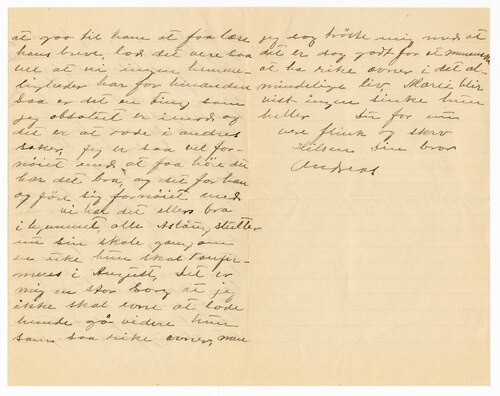 at gaa til ham at faa lære
hans breve, lad det være saa
vel at vi ingen hemme-
ligheder har for hinanden
saa er det en ting som
jeg absolut er imod og
det er at rode i andres
saker, jeg er saa vel for-
nøiet med at faa høre det
har det bra, og det får han
og føre sig fornøiet med
vi har det ellers bra
i h, alle, slutter
nu sin skole gang, om
en uke hun skal konfir-
meres i August, Det er
mig en stor Sorg at jeg
ikke skal evne at lade
hende gå videre hun
som saa rike evner, men
jeg dog trøste mig med at
det er dog godt for et menneske
at ha rike evner i det al-
mindelige liv, Marie blir
vist ingen sinke hun
heller Sin for nu
vær flink og skriv
Hilsen Din bror
Andreas